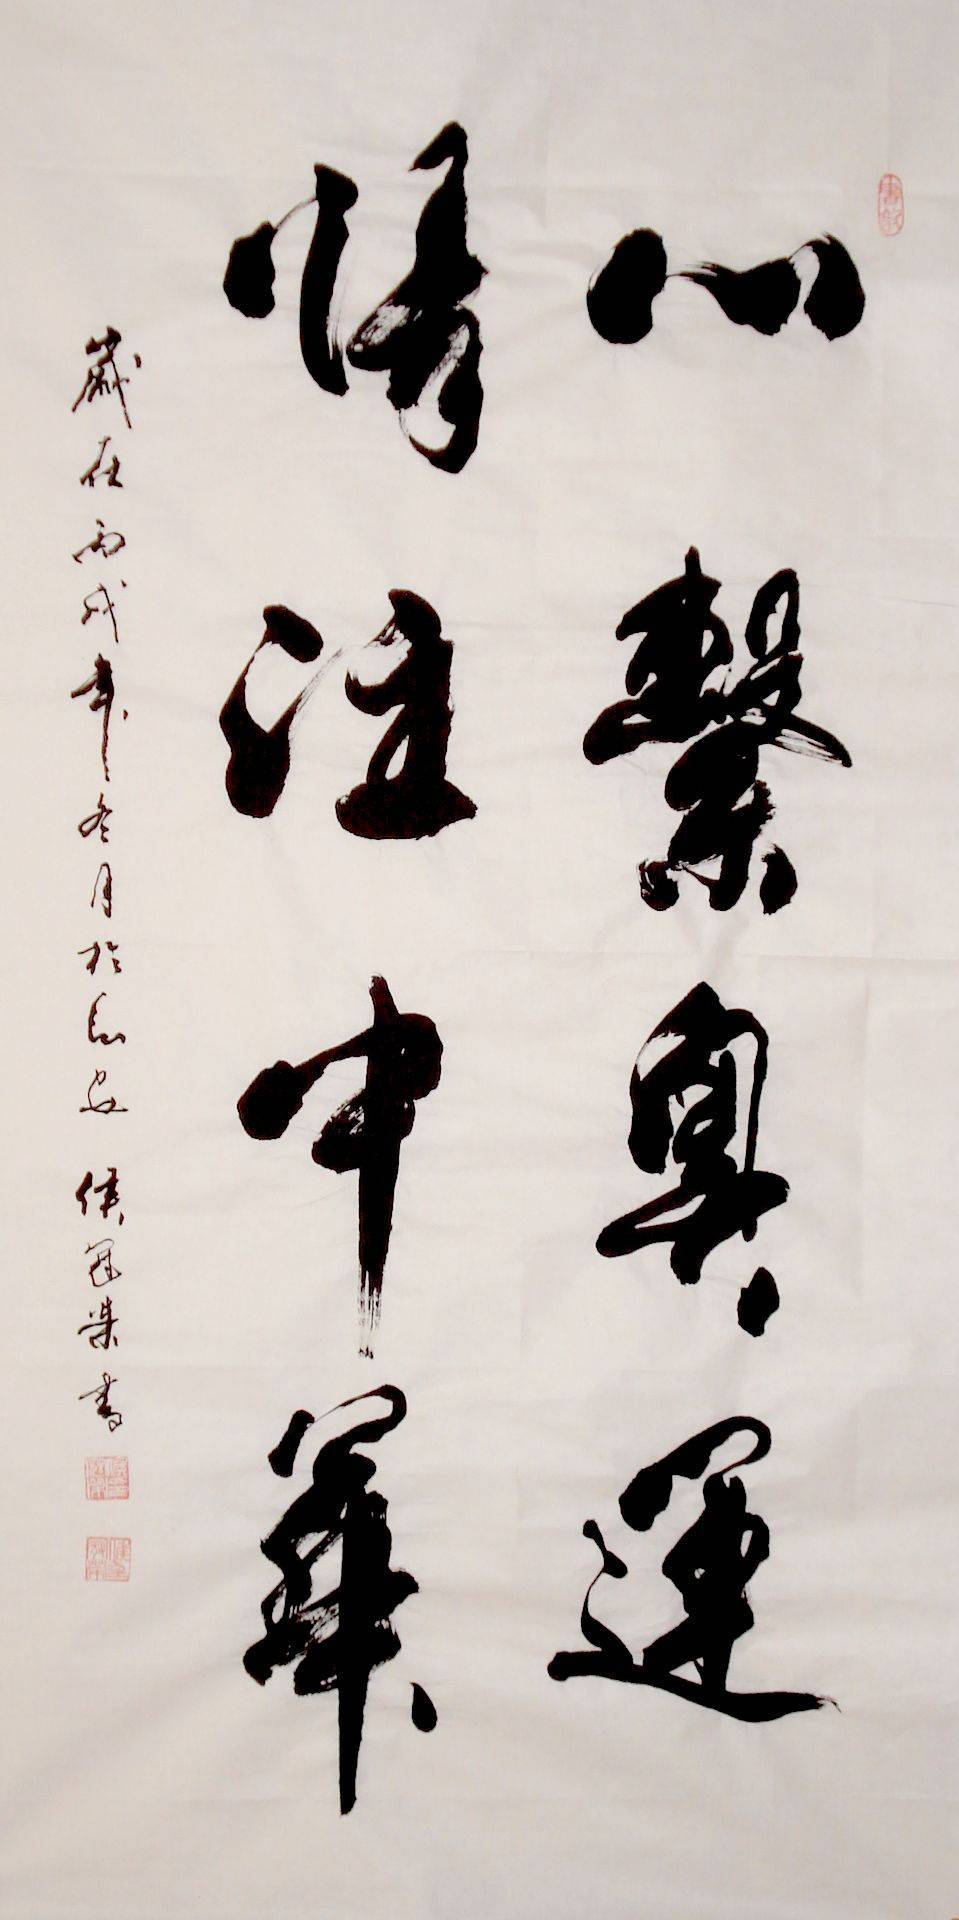 心繫奧運
情注中華
歲在丙戌年冬月於長安 侯冠榮書